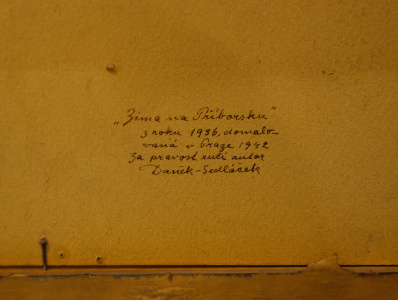 „Zima na Příborsku"
z roku 1936, domalo-
vaná v Praze 1942
Za pravost ručí autor
Daněk-Sedláček